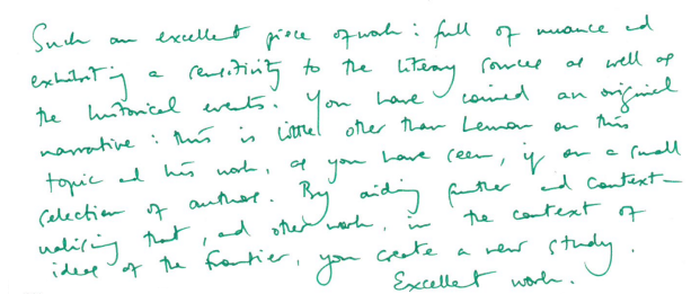 Such an excellent piece of work: full of nuance and
exhibiting a sensitivity to the literary sources as well as
the historical events. You have coined an original
narrative: this is little other than Lemon on this
topic and his work, as you have seen, is on a small
selection of authors. By aiding further and context-
ualising that, and other work, in the context of
ideas of the frontier, you create a new study.
Excellent work.